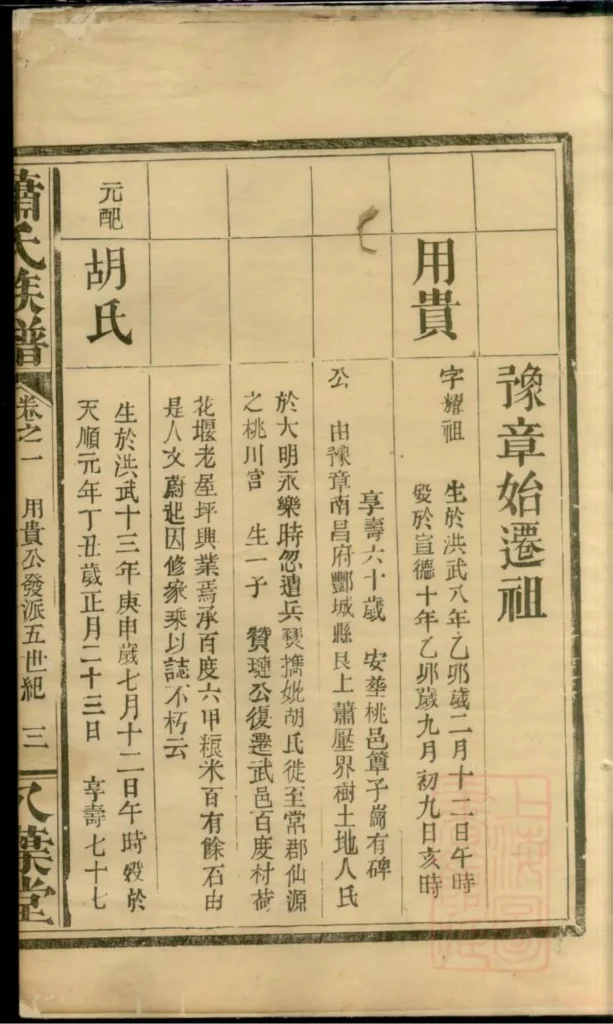 豫章始遷祖
用貴
字耀祖 生於洪武八年乙卯歲二月十二日午時
歿於宣德十年乙卯歲九月初九日亥時
享壽六十歲 安塟桃邑簟子崗有碑
公 由豫章南昌府酆城縣艮上蕭壓界樹土地人氏
於大明永樂時忽遭兵燹擕妣胡氏徙至常郡仙源
之桃川宫 生一子 贊璉公復遷武邑百度村荷
花堰老屋坪興業焉承百度六甲粮米百有餘石由
是人文蔚起因修家乘以誌不朽云
元配
胡氏
生於洪武十三年庚申歲七月十二日午時歿於
天順元年丁丑歲正月二十三日 享壽七十七
蕭氏族譜
卷之一 用貴公發派五世紀 三
八葉堂